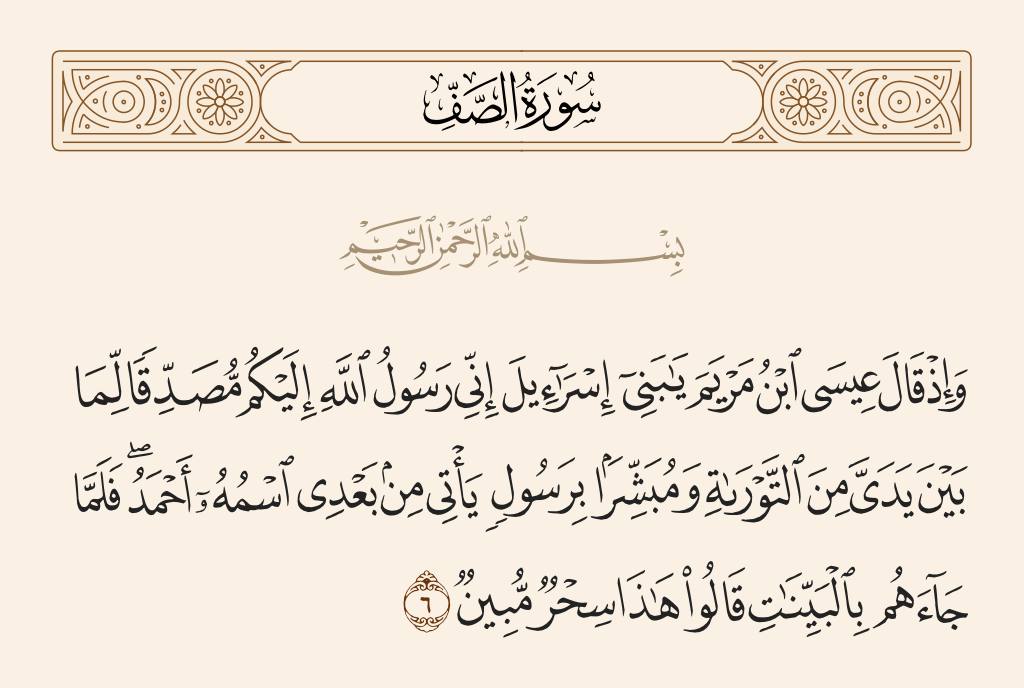 سُورَةُ الصَّفِّ
بِسْمِ ٱللَّهِ ٱلرَّحْمَٰنِ ٱلرَّحِيمِ
وَإِذْ قَالَ عِيسَى ٱبْنُ مَرْيَمَ يَٰبَنِىٓ إِسْرَٰٓءِيلَ إِنِّى رَسُولُ ٱللَّهِ إِلَيْكُم مُّصَدِّقًا لِّمَا
بَيْنَ يَدَىَّ مِنَ ٱلتَّوْرَىٰةِ وَمُبَشِّرًۢا بِرَسُولٍ يَأْتِى مِنۢ بَعْدِى ٱسْمُهُۥٓ أَحْمَدُ ۖ فَلَمَّا
جَآءَهُم بِٱلْبَيِّنَٰتِ قَالُوا۟ هَٰذَا سِحْرٌ مُّبِينٌ ٦